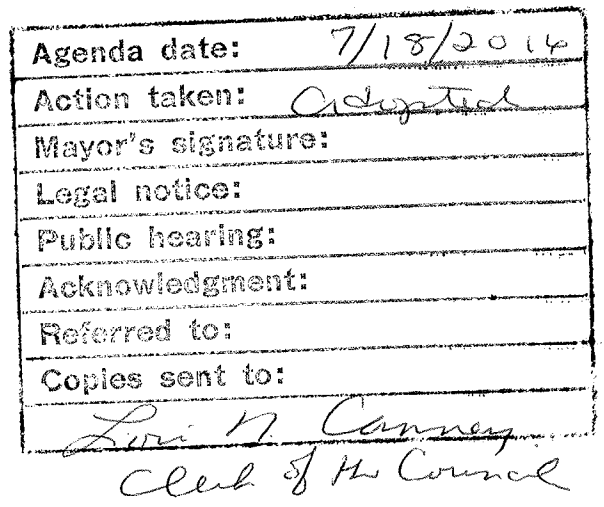 Agenda date: 7/18/2016
Action taken: Adopted
Mayor's signature:
Legal notice:
Public hearing:
Acknowledgment:
Referred to:
Copies sent to:
Lori N. Canney
Clerk of the Council